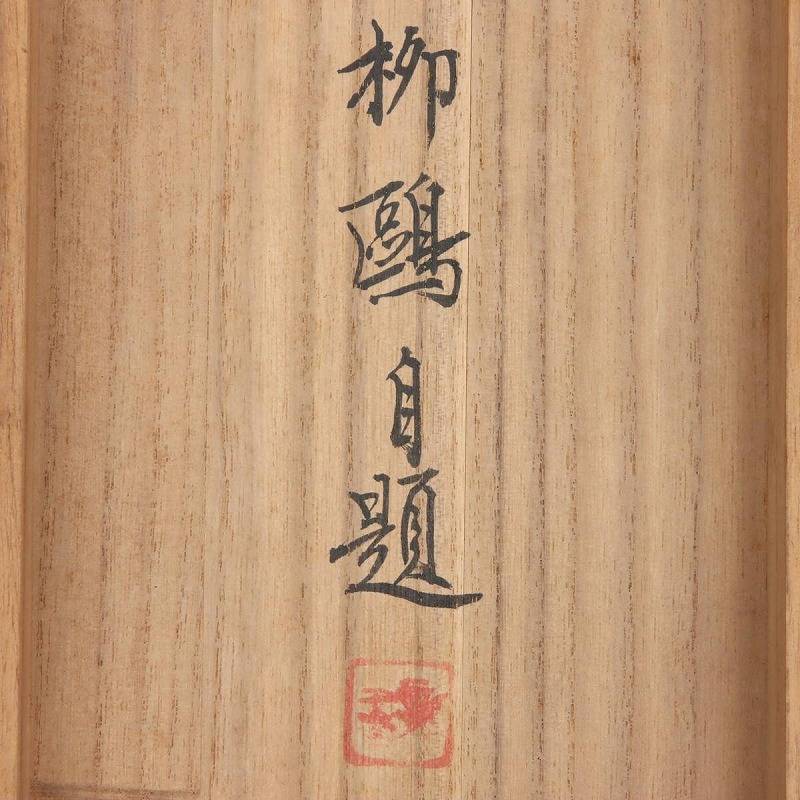 柳鷗自題